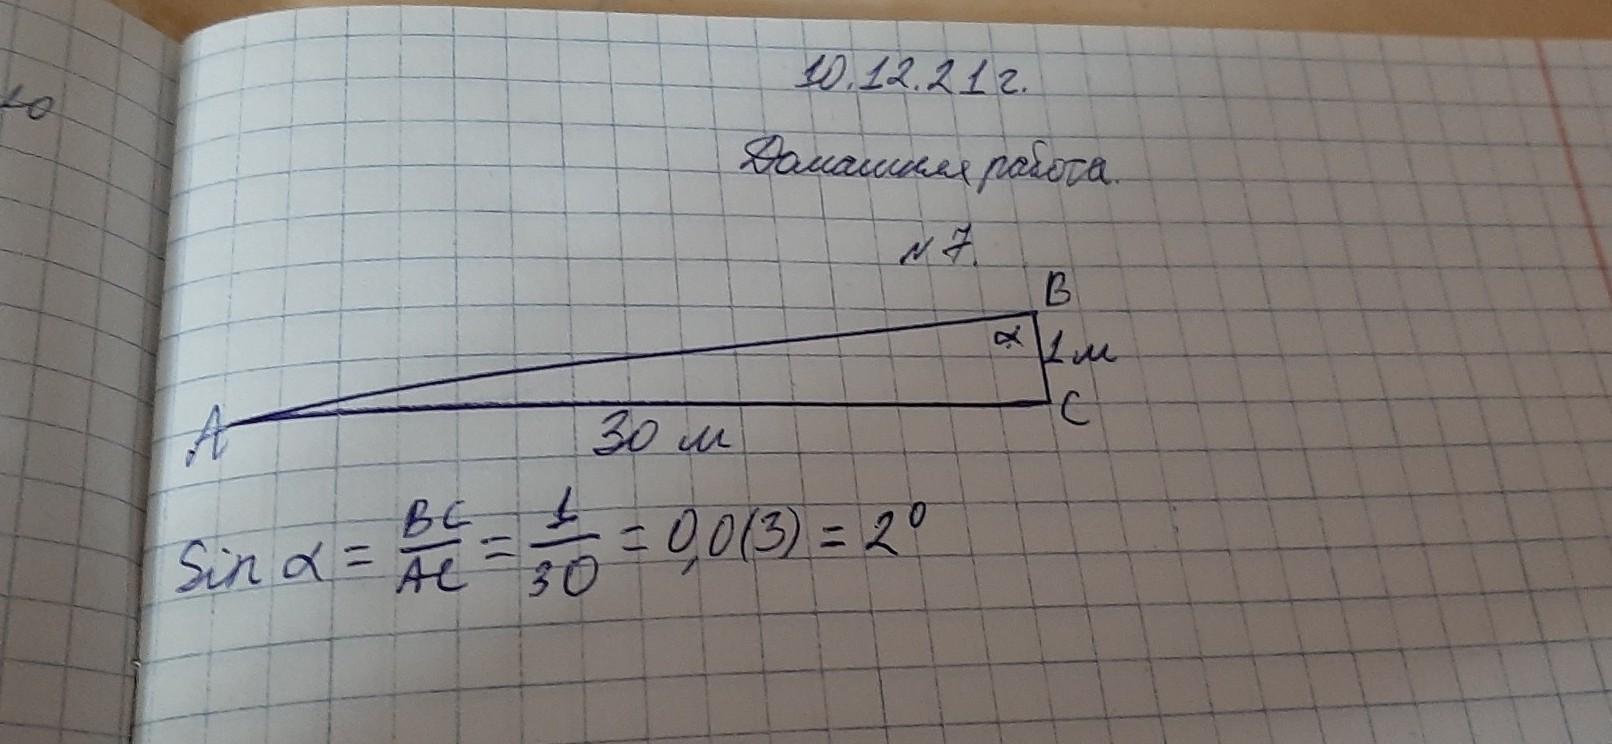 10.12.21г.
Домашняя работа.
N 7.
B
α 1м
A C
30 м
Sin α = BC/AC = 1/30 = 0,0(3) = 2°